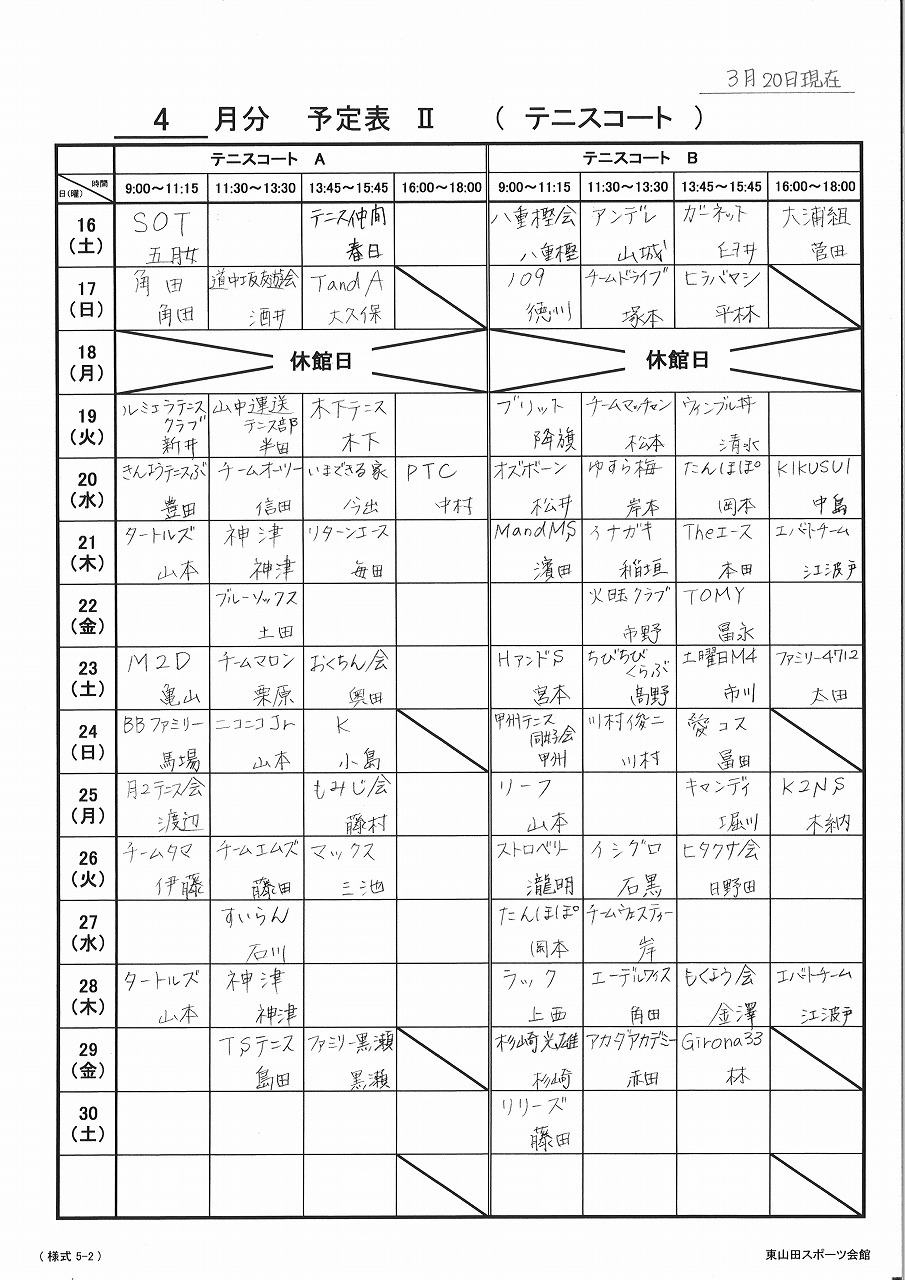 3月20日現在
4 月分 予定表 Ⅱ ( テニスコート )
テニスコート A テニスコート B
日(曜) 時間 9:00～11:15 11:30～13:30 13:45～15:45 16:00～18:00 9:00～11:15 11:30～13:30 13:45～15:45 16:00～18:00
16 SOT テニス仲間 八重樫会 アンデレ ガーネット 大浦組
(土) 五月女 春日 八重樫 山城 臼井 菅田
17 角田 道中坂友遊会 TandA 109 チームドライブ ヒラバヤシ
(日) 角田 酒井 大久保 徳川 塚本 平林
18 休館日 休館日
(月)
19 ルミエラテニス 山中運送 木下テニス ブリット チームマッチャン ウィンブル丼
クラブ テニス部
(火) 新井 半田 木下 降旗 松本 清水
20 きんようテニスぶ チームオーツー いまできる家 PTC オズボーン ゆすら梅 たんぽぽ KIKUSUI
(水) 豊田 信田 今出 中村 松井 岸本 岡本 中島
21 タートルズ 神津 リターンエース MandMS イナガキ Theエース エバトチーム
(木) 山本 神津 毎田 濱田 稲垣 本田 江波戸
22 ブルーソックス 火曜クラブ TOMY
(金) 土田 市野 冨永
23 M2D チームマロン おくちん会 HアンドS ちびちび 土曜日M4 ファミリー4712
くらぶ
(土) 亀山 栗原 奥田 宮本 高野 市川 太田
24 BBファミリー ニコニコJr K 甲州テニス 川村俊二 愛コス
同好会
(日) 馬場 山本 小島 甲州 川村 冨田
25 月2テニス会 もみじ会 リーフ キャンディ K2NS
(月) 渡辺 藤村 山本 堀川 木納
26 チームタマ チームエムズ マックス ストロベリー イシグロ ヒタクサ会
(火) 伊藤 藤田 三池 瀧明 石黒 日野田
27 すいらん たんぽぽ チームウェスティー
(水) 石川 岡本 岸
28 タートルズ 神津 ラック エーデルワイス もくよう会 エバトチーム
(木) 山本 神津 上西 角田 金澤 江波戸
29 TSテニス ファミリー黒瀬 杉崎光雄 アカダアカデミー Girona33
(金) 島田 黒瀬 杉崎 赤田 林
30 リリーズ
(土) 藤田
(様式 5-2) 東山田スポーツ会館